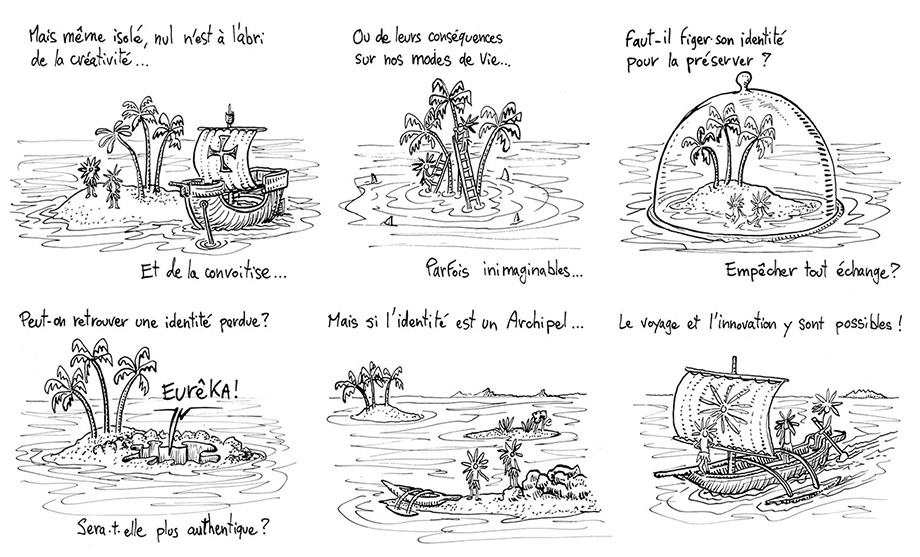 Mais même isolé, nul n'est à l'abri
de la créativité...
Et de la convoitise...
Ou de leurs conséquences
sur nos modes de vie...
Parfois inimaginables...
Faut-il figer son identité
pour la préserver ?
Empêcher tout échange ?
Peut-on retrouver une identité perdue ?
EURÊKA !
Sera-t-elle plus authentique ?
Mais si l'identité est un Archipel ...
Le voyage et l'innovation y sont possibles !